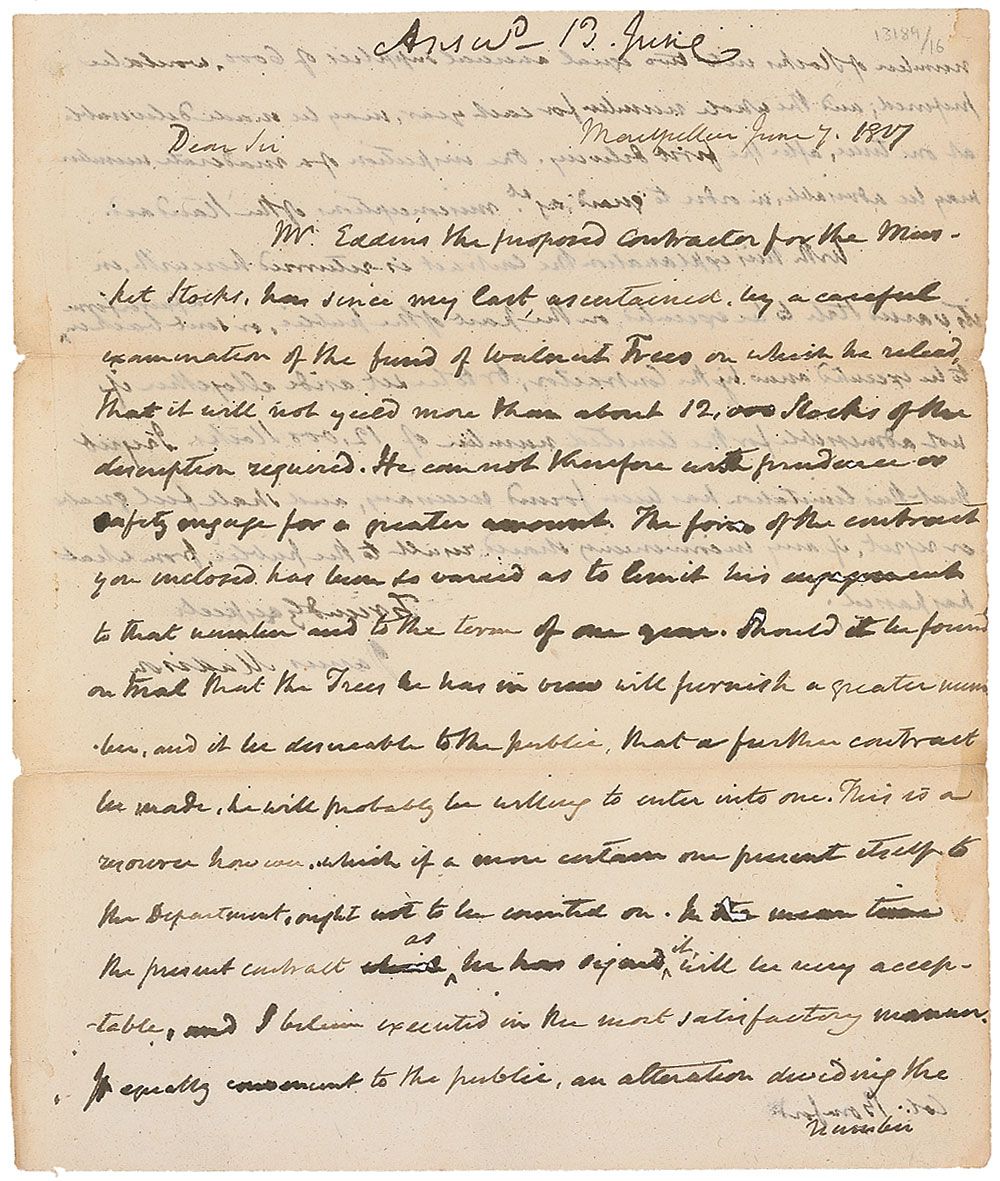 Answd 13. June
13189/16
Montpellier June 7. 1817
Dear Sir
Mr. Eddins the proposed Contractor for the Mus-
ket Stocks, has since my last ascertained, by a careful
examination of the fund of Walnut Trees on which he relied,
that it will not yield more than about 12,000 Stocks of the
description required. He can not therefore with prudence or
safety engage for a greater amount. The form of the contract
you enclosed has been so varied as to limit his engagement
to that number and to the term of one year. Should it be found
on trial that the Trees he has in view will furnish a greater num
-ber, and it be desireable to the public, that a further contract
be made, he will probably be willing to enter into one. This is a
resource however, which if a more certain one present itself to
the Department, ought not to be counted on. In the mean time
the present contract as he has signed it, will be very accep-
-table, and I believe executed in the most satisfactory manner.
If equally convenient to the public, an alteration dividing the
Col. Bomford
number